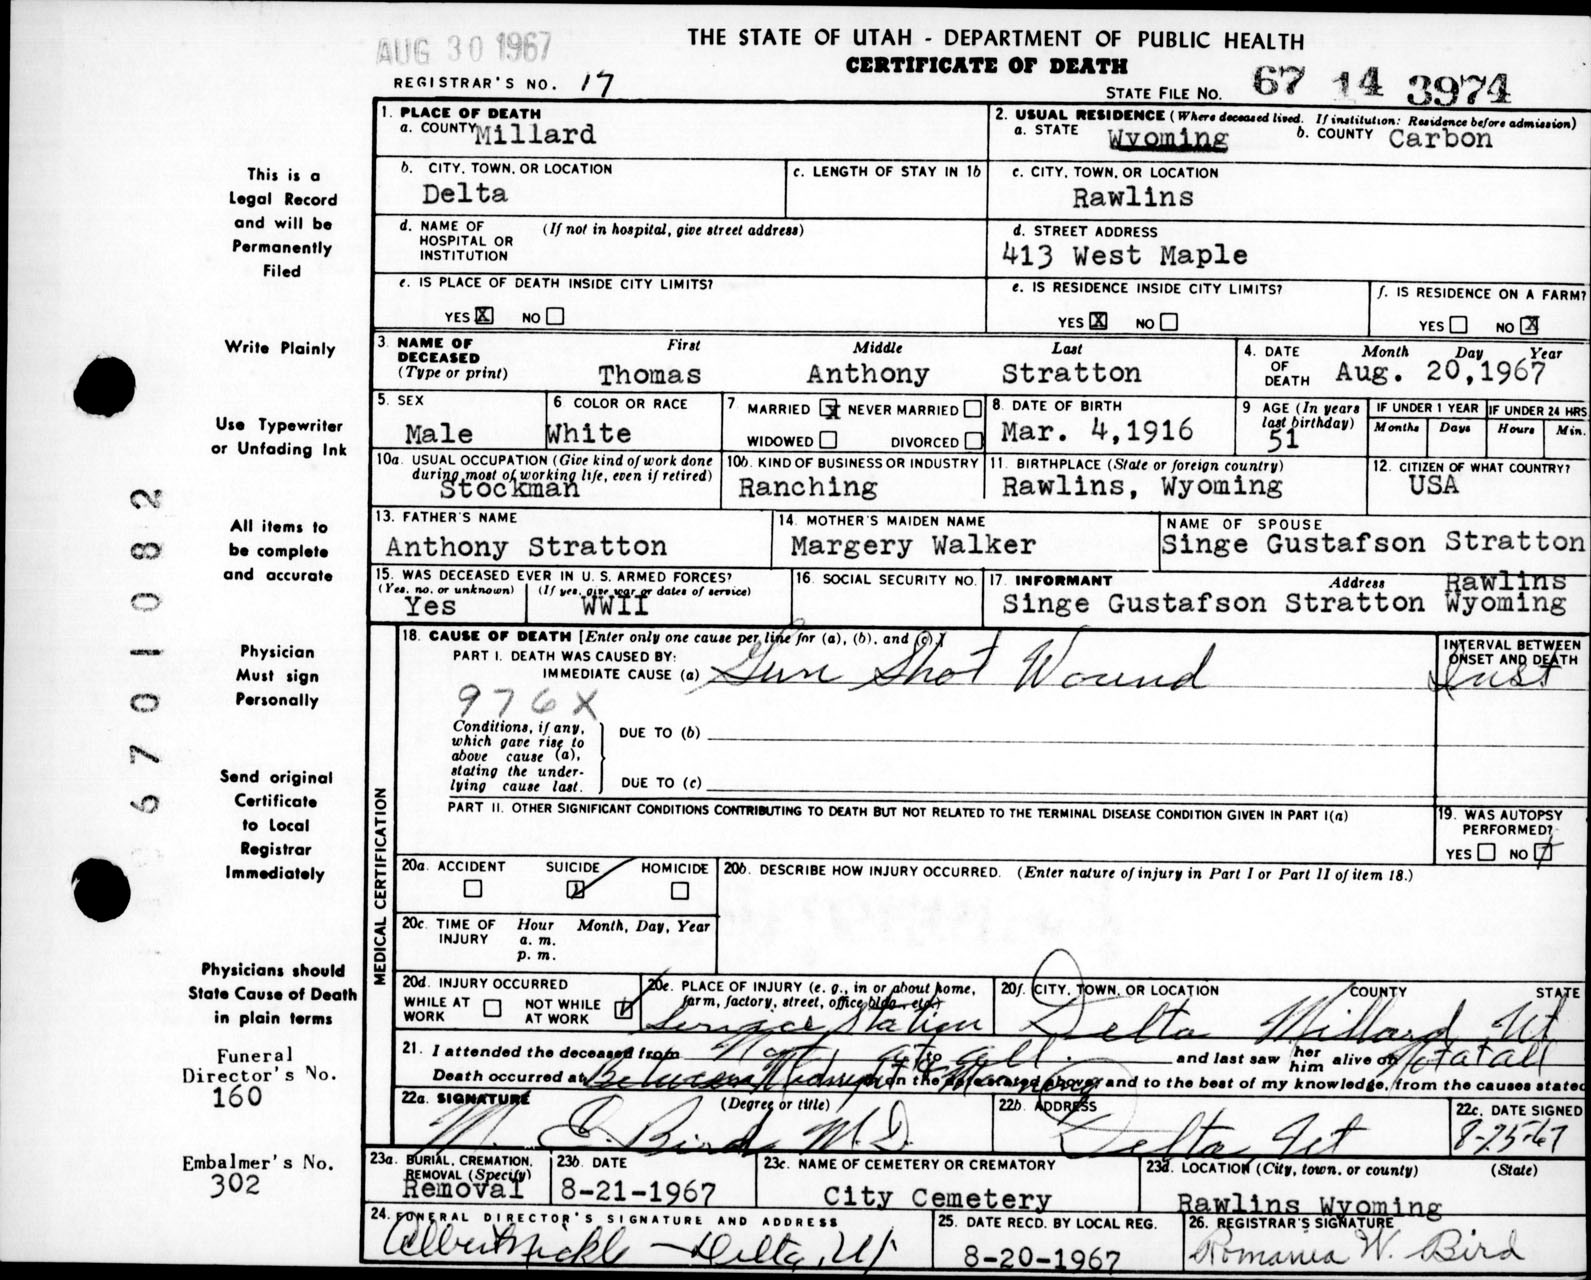 AUG 30 1967
THE STATE OF UTAH - DEPARTMENT OF PUBLIC HEALTH
CERTIFICATE OF DEATH
REGISTRAR'S NO. 17
STATE FILE NO. 67 14 3974
This is a
Legal Record
and will be
Permanently
Filed
Write Plainly
Use Typewriter
or Unfading Ink
All items to
be complete
and accurate
Physician
Must sign
Personally
Send original
Certificate
to Local
Registrar
Immediately
Physicians should
State Cause of Death
in plain terms
Funeral
Director's No.
160
Embalmer's No.
302
6701082
1. PLACE OF DEATH
a. COUNTY Millard
2. USUAL RESIDENCE (Where deceased lived. If institution: Residence before admission)
a. STATE Wyoming b. COUNTY Carbon
b. CITY, TOWN, OR LOCATION
Delta
c. LENGTH OF STAY IN 1b
c. CITY, TOWN, OR LOCATION
Rawlins
d. NAME OF HOSPITAL OR INSTITUTION (If not in hospital, give street address)
d. STREET ADDRESS
413 West Maple
e. IS PLACE OF DEATH INSIDE CITY LIMITS?
YES X NO
e. IS RESIDENCE INSIDE CITY LIMITS?
YES X NO
f. IS RESIDENCE ON A FARM?
YES NO X
3. NAME OF DECEASED (Type or print)
First Middle Last
Thomas Anthony Stratton
4. DATE OF DEATH Month Day Year
Aug. 20,1967
5. SEX
Male
6 COLOR OR RACE
White
7 MARRIED X NEVER MARRIED
WIDOWED DIVORCED
8. DATE OF BIRTH
Mar. 4,1916
9 AGE (In years last birthday)
51
IF UNDER 1 YEAR IF UNDER 24 HRS
Months Days Hours Min.
10a. USUAL OCCUPATION (Give kind of work done during most of working life, even if retired)
Stockman
10b. KIND OF BUSINESS OR INDUSTRY
Ranching
11. BIRTHPLACE (State or foreign country)
Rawlins, Wyoming
12. CITIZEN OF WHAT COUNTRY?
USA
13. FATHER'S NAME
Anthony Stratton
14. MOTHER'S MAIDEN NAME
Margery Walker
NAME OF SPOUSE
Singe Gustafson Stratton
15. WAS DECEASED EVER IN U. S. ARMED FORCES?
(Yes, no, or unknown) (If yes, give war or dates of service)
Yes WWII
16. SOCIAL SECURITY NO.
17. INFORMANT Address
Singe Gustafson Stratton Rawlins Wyoming
MEDICAL CERTIFICATION
18. CAUSE OF DEATH [Enter only one cause per line for (a), (b), and (c).]
PART I. DEATH WAS CAUSED BY:
IMMEDIATE CAUSE (a) Gun Shot Wound
INTERVAL BETWEEN ONSET AND DEATH
Inst
976X
Conditions, if any,
which gave rise to
above cause (a),
stating the under-
lying cause last.
DUE TO (b)
DUE TO (c)
PART II. OTHER SIGNIFICANT CONDITIONS CONTRIBUTING TO DEATH BUT NOT RELATED TO THE TERMINAL DISEASE CONDITION GIVEN IN PART I(a)
19. WAS AUTOPSY PERFORMED?
YES NO
20a. ACCIDENT SUICIDE HOMICIDE
20b. DESCRIBE HOW INJURY OCCURRED. (Enter nature of injury in Part I or Part II of item 18.)
20c. TIME OF INJURY Hour Month, Day, Year
a. m.
p. m.
20d. INJURY OCCURRED
WHILE AT WORK NOT WHILE AT WORK
20e. PLACE OF INJURY (e. g., in or about home, farm, factory, street, office bldg., etc.)
Service Station
20f. CITY, TOWN, OR LOCATION COUNTY STATE
Delta Millard Ut
21. I attended the deceased from Not at all. to and last saw her him alive on Not at all
Death occurred at Between Midnight & Morning on the date stated above, and to the best of my knowledge, from the causes stated
22a. SIGNATURE (Degree or title)
M. E. Bird M.D.
22b. ADDRESS
Delta, Ut
22c. DATE SIGNED
8-25-67
23a. BURIAL, CREMATION, REMOVAL (Specify)
Removal
23b. DATE
8-21-1967
23c. NAME OF CEMETERY OR CREMATORY
City Cemetery
23d. LOCATION (City, town, or county) (State)
Rawlins Wyoming
24. FUNERAL DIRECTOR'S SIGNATURE AND ADDRESS
Delta, Ut
25. DATE RECD. BY LOCAL REG.
8-20-1967
26. REGISTRAR'S SIGNATURE
Romania W. Bird